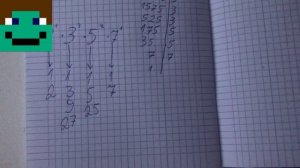 ·3 ·5 ·7
1 1 1 1
2 3 5 7
9 25
27
1575 3
525 3
175 5
35 5
7 7
1